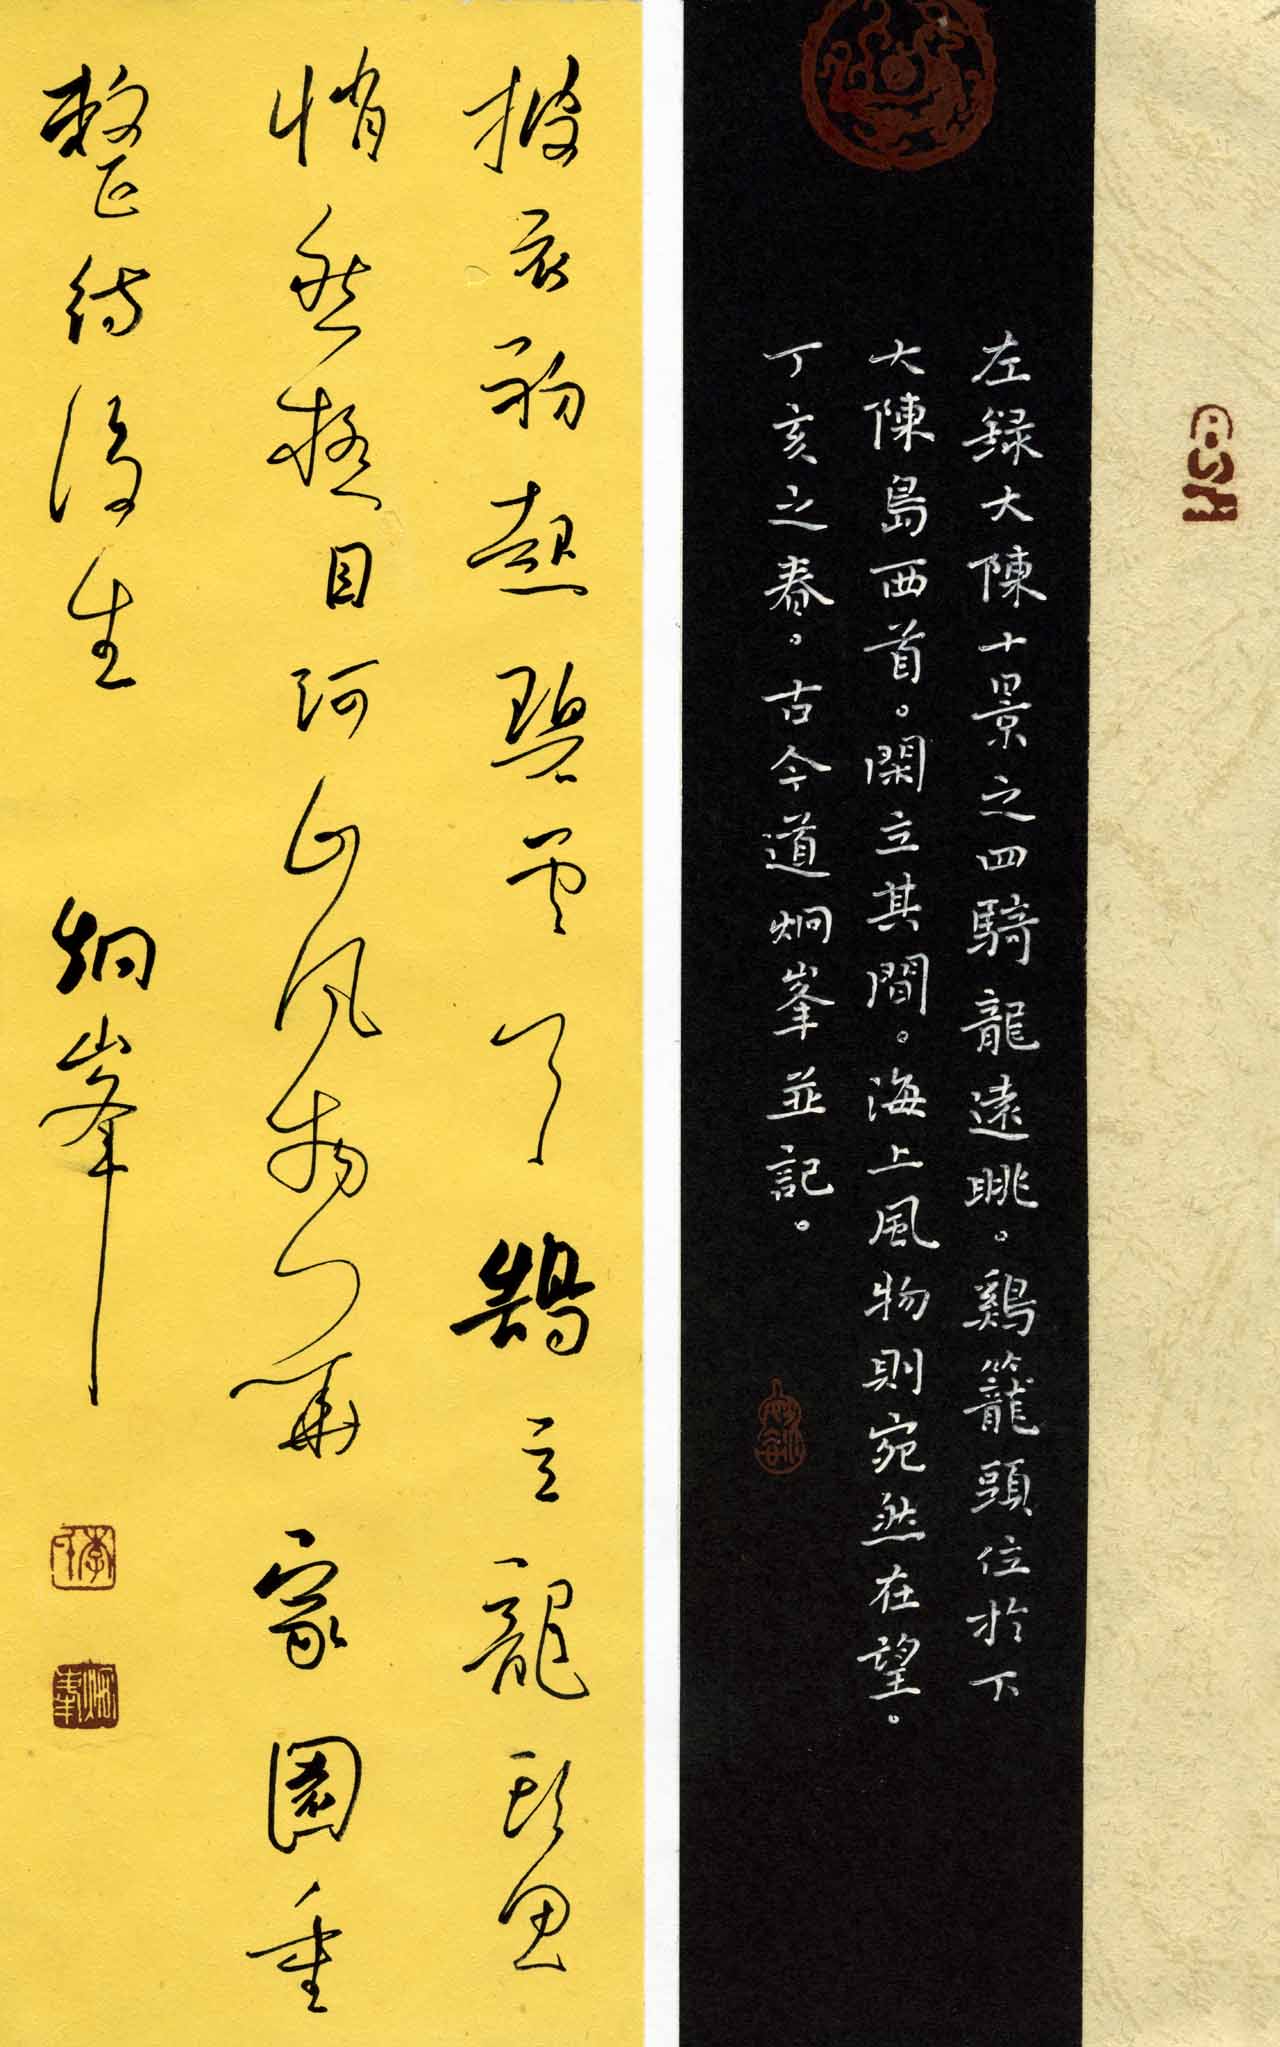 左録大陳十景之四騎龍遠眺。鷄籠頭位於下
大陳島西首。閑立其間。海上風物則宛然在望。
丁亥之春。古今道炯峯並記。
披衣初起碧雲鵠立龍頭思
悄然極目河山風物家園重
整待後生
炯峯